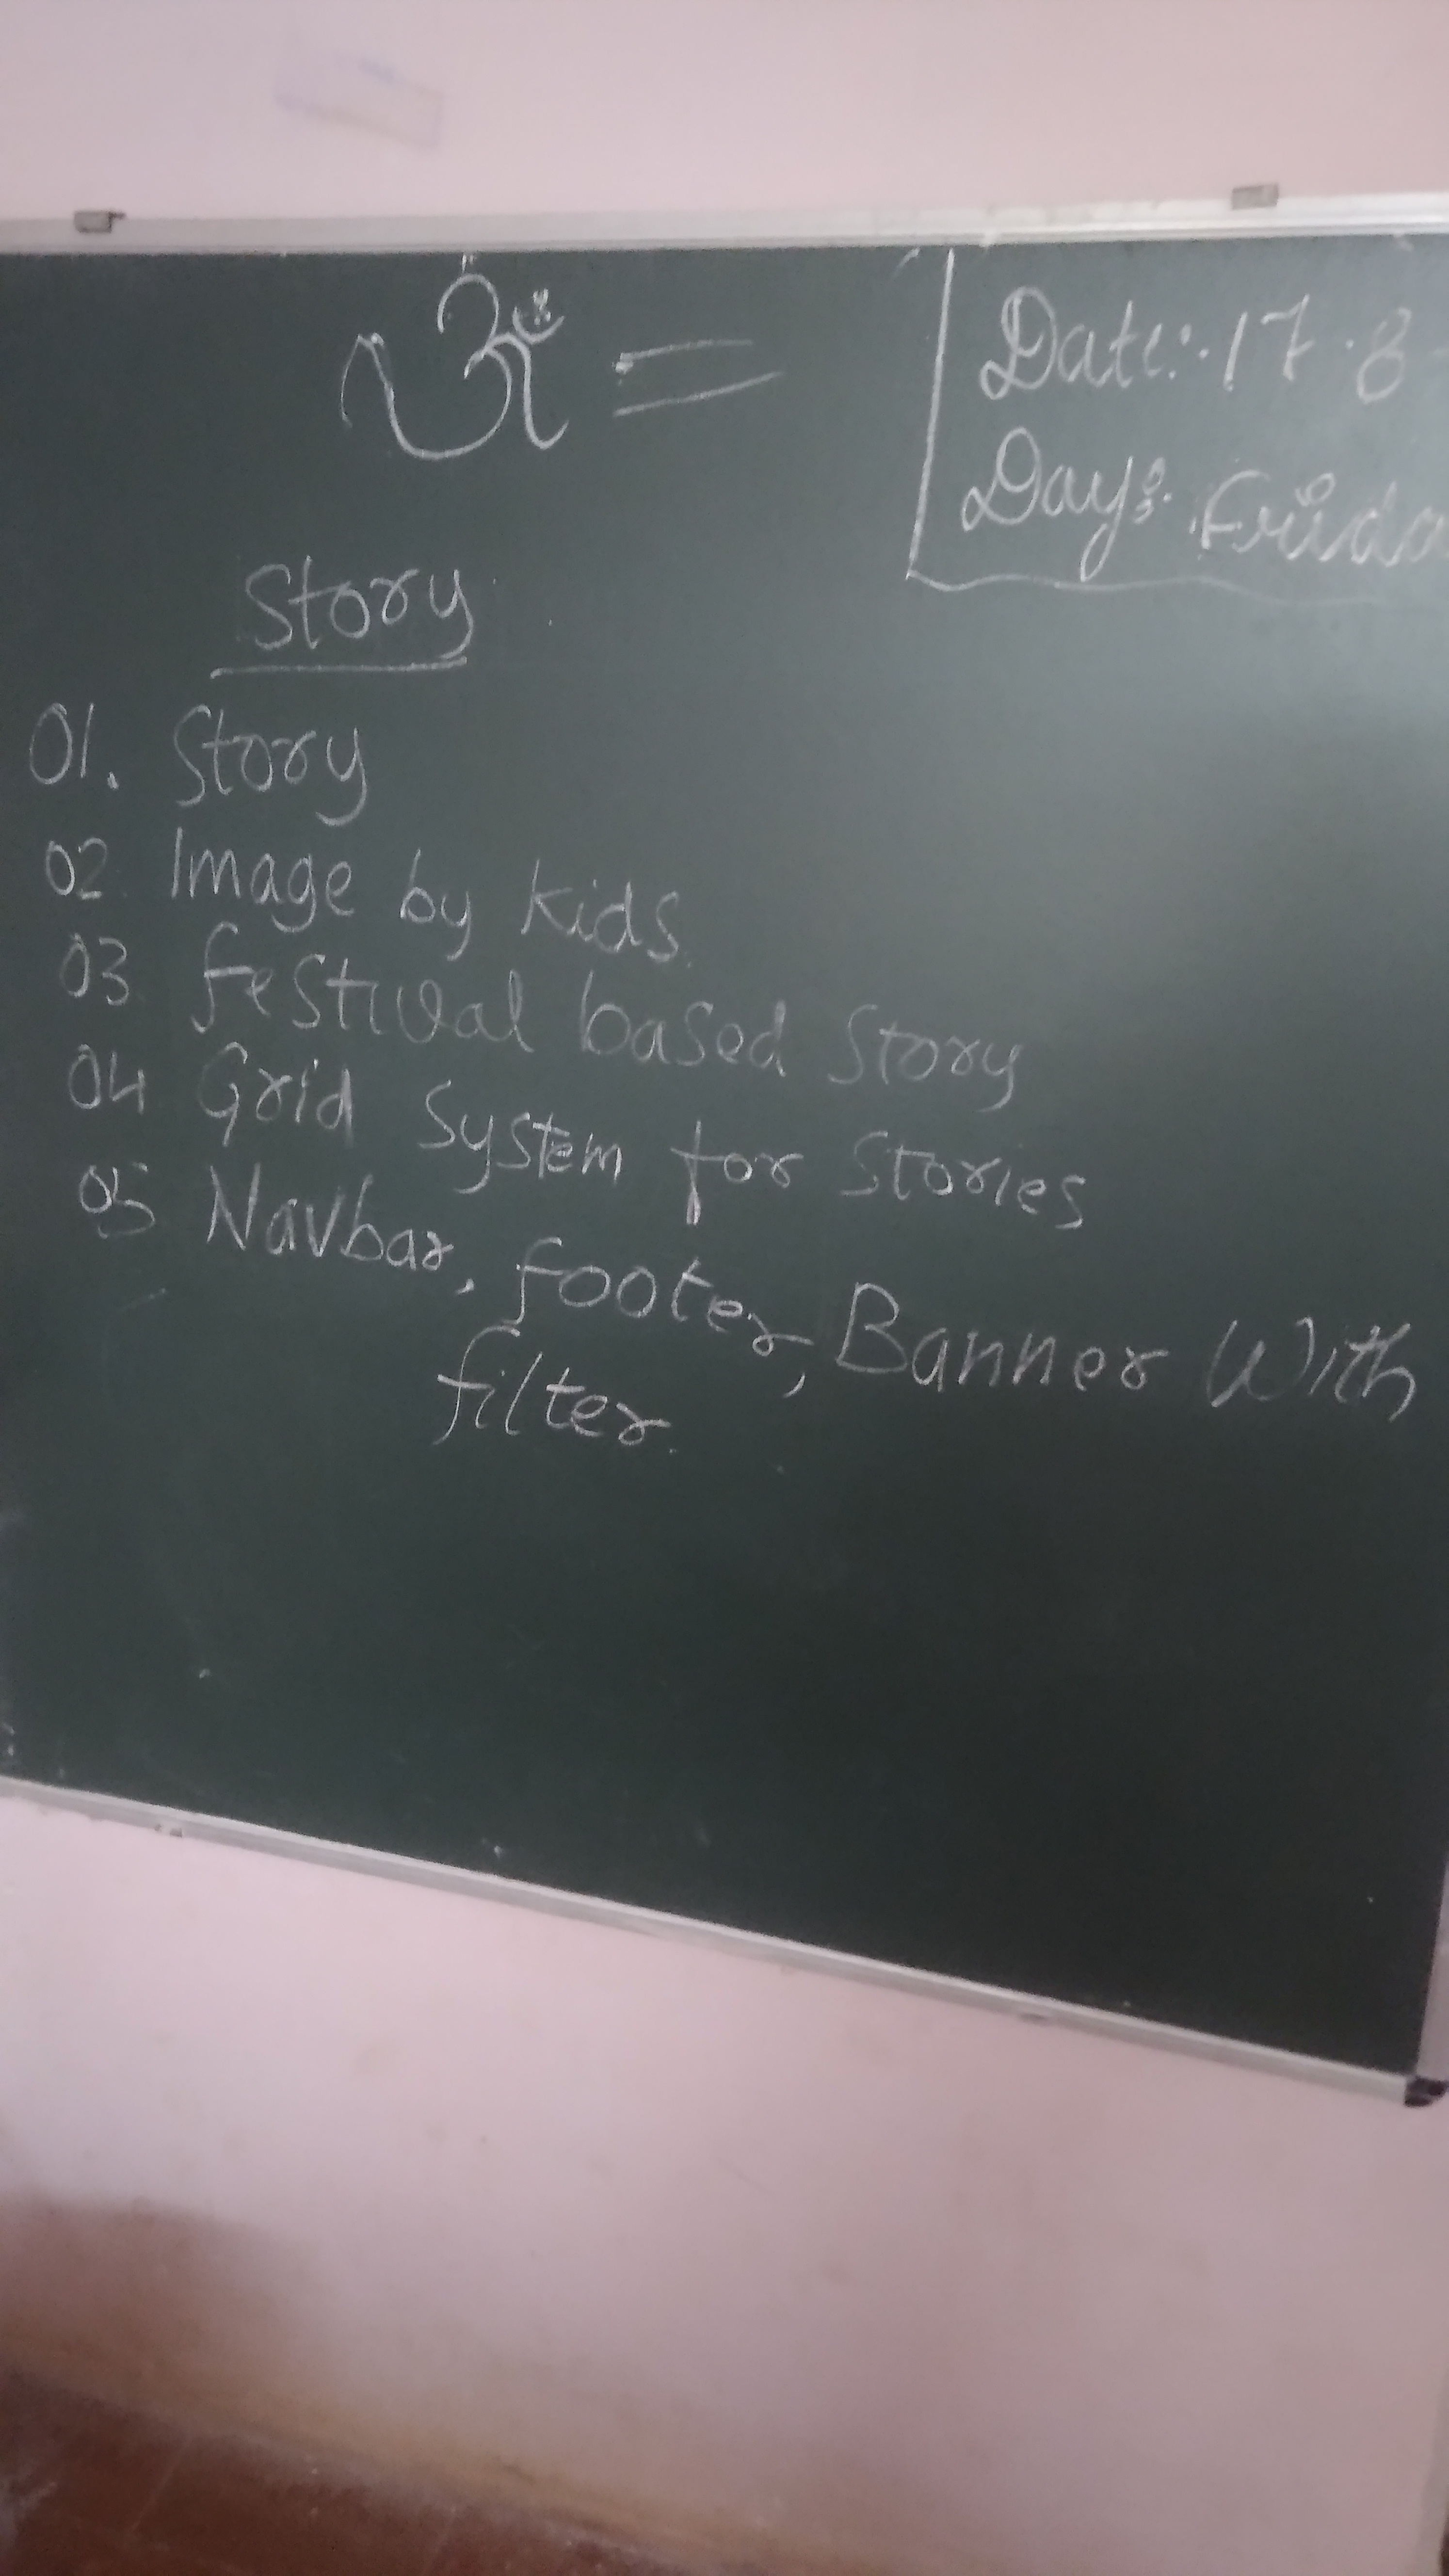 ॐ =
Date:- 17.8
Day:-
Story
01. Story
02 Image by kids.
03 festival based Story
04 Grid System for Stories
05 Navbar, footer, Banner With
filter.